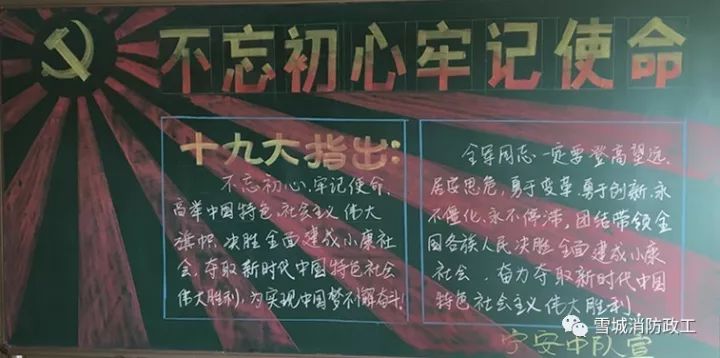 不忘初心牢记使命
十九大指出:
不忘初心、牢记使命、
高举中国特色、社会主义伟大
旗帜、决胜全面建成小康社
会、夺取新时代中国特色社会
伟大胜利,为实现中国梦不懈奋斗.
全军同志一定要登高望远、
居安思危,勇于变革、勇于创新、永
不僵化、永不停滞,团结带领全
国各族人民决胜全面建成小康
社会,奋力夺取新时代中国
特色社会主义伟大胜利.
宁安中队宣
雪城消防政工